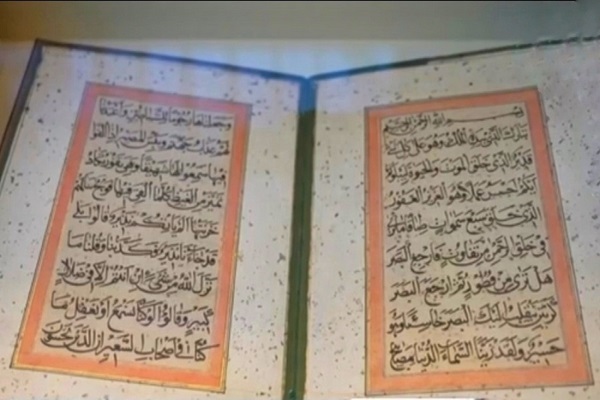 بسم الله الرحمن الرحيم
تبارك الذي بيده الملك وهو على كل شيء
قدير الذي خلق الموت والحيوة ليبلوكم
ايكم احسن عملا وهو العزيز الغفور
الذي خلق سبع سموات طباقا ما ترى
في خلق الرحمن من تفاوت فارجع البصر
هل ترى من فطور ثم ارجع البصر
كرتين ينقلب اليك البصر خاسئا وهو
حسير ولقد زينا السماء الدنيا بمصابيح
وجعلناها رجوما للشياطين واعتدنا
لهم عذاب جهنم وبئس المصير اذا القوا
فيها سمعوا لها شهيقا وهي تفور تكاد
تميز من الغيظ كلما القي فيها فوج سألهم
خزنتها الم يأتكم نذير قالوا بلى
قد جاءنا نذير فكذبنا وقلنا ما
نزل الله من شيء ان انتم الا في ضلال
كبير وقالوا لو كنا نسمع او نعقل ما
كنا في اصحاب السعير ان الذين يخشون